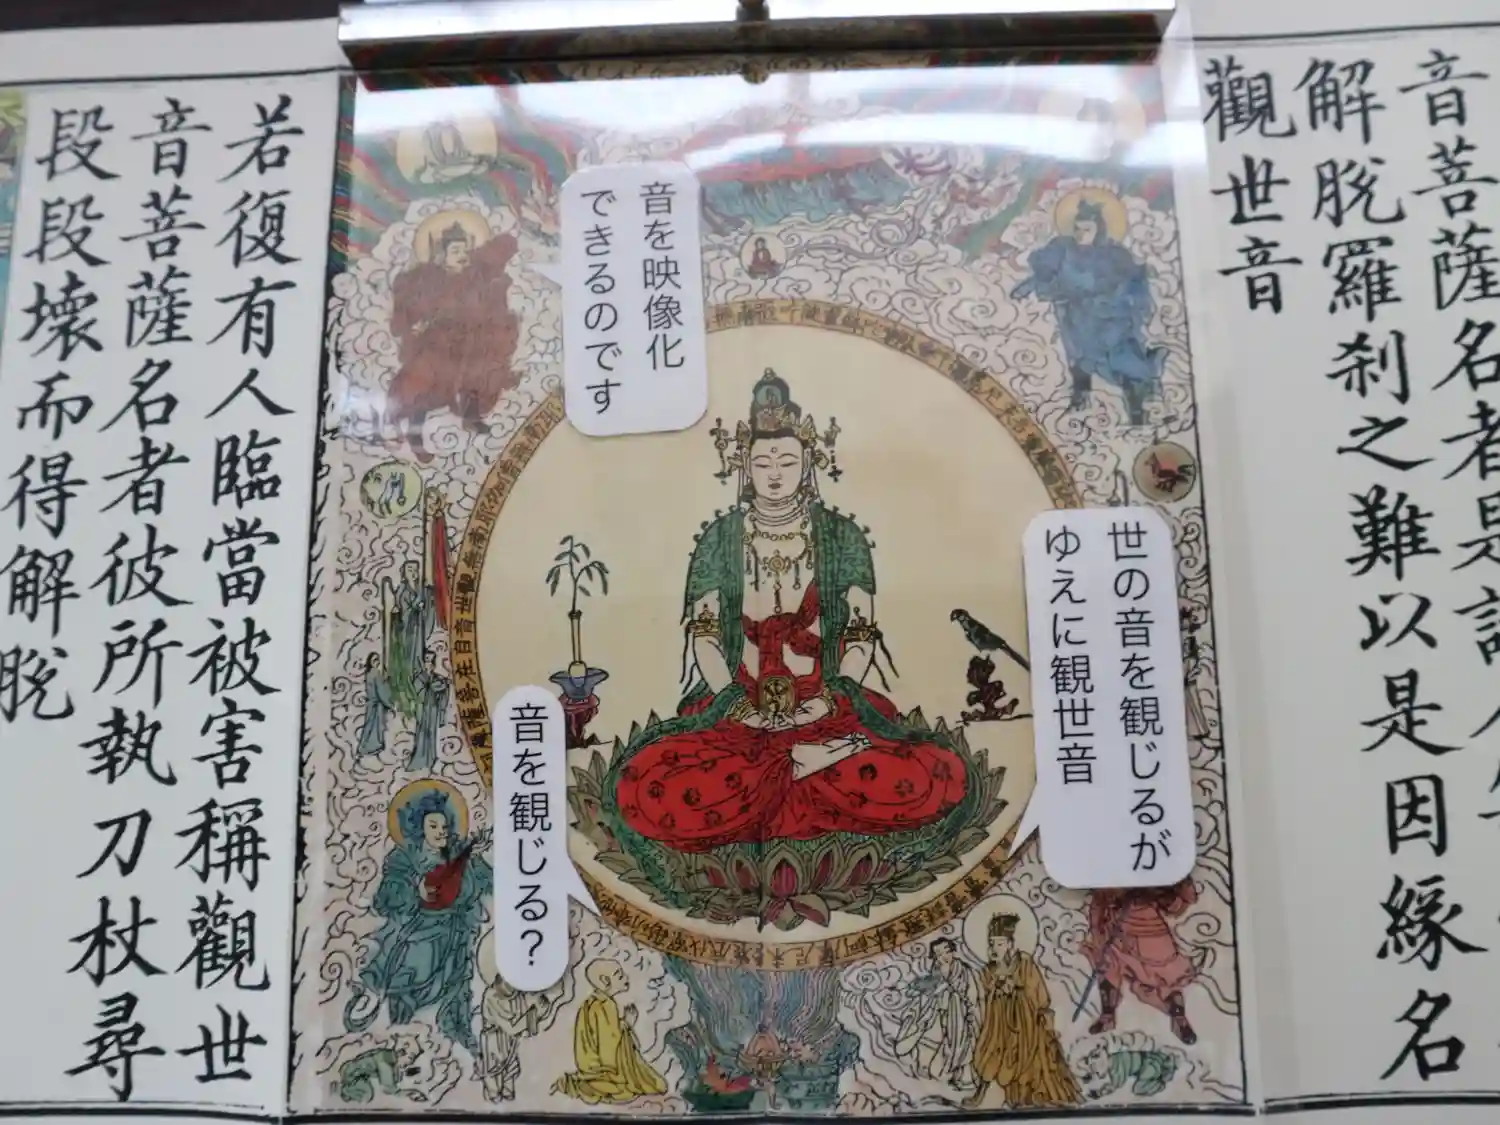 音菩薩名者是諸人等
解脫羅刹之難以是因緣名
觀世音
音を映像化
できるのです
世の音を観じるが
ゆえに観世音
音を観じる？
若復有人臨當被害稱觀世
音菩薩名者彼所執刀杖尋
段段壞而得解脫